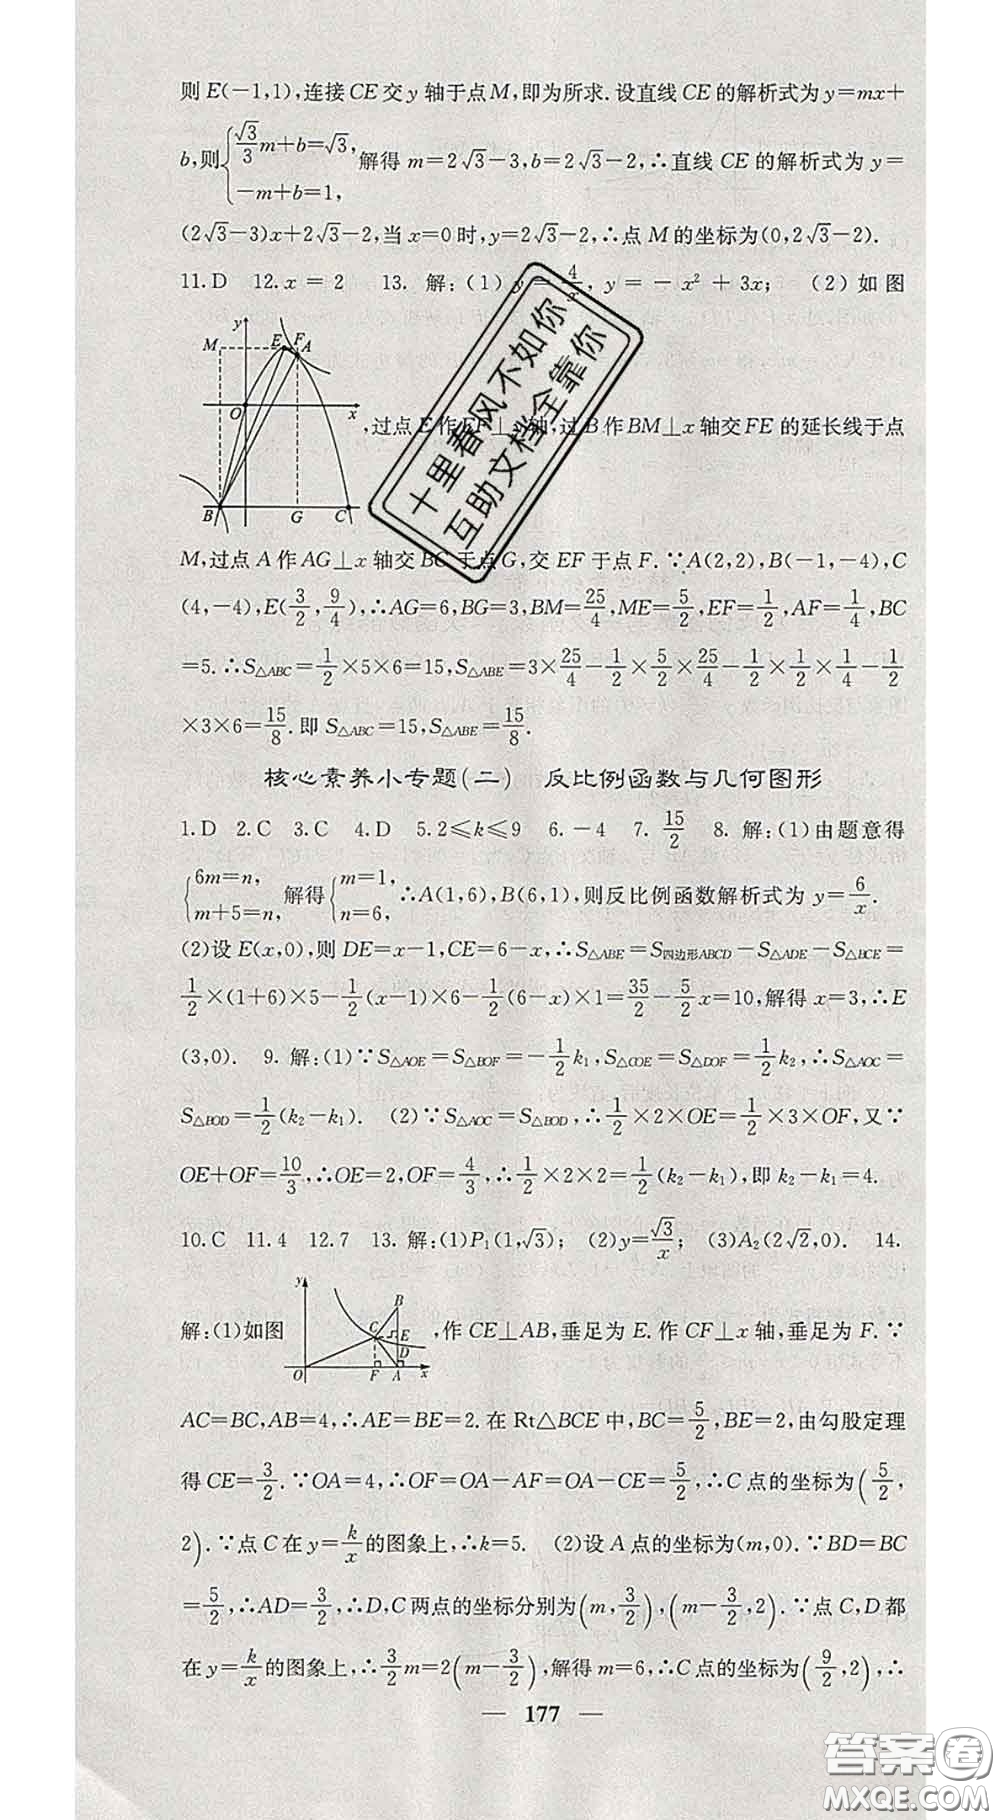 则 E(-1,1),连接 CE 交 y 轴于点 M,即为所求. 设直线 CE 的解析式为 y=mx+
b,则{√3/3 m+b=√3, -m+b=1, 解得 m=2√3-3,b=2√3-2,∴直线 CE 的解析式为 y=
(2√3-3)x+2√3-2,当 x=0 时,y=2√3-2,∴点 M 的坐标为(0,2√3-2).
11.D 12.x=2 13. 解:(1)y=4/x, y=-x²+3x; (2)如图
y M E F A
O x ,过点 E 作 EF⊥ 轴,过 B 作 BM⊥x 轴交 FE 的延长线于点
B G C
M,过点 A 作 AG⊥x 轴交 BC 于点 G,交 EF 于点 F.∵A(2,2),B(-1,-4),C
(4,-4),E(3/2,9/4),∴AG=6,BG=3,BM=25/4,ME=5/2,EF=1/2,AF=1/4,BC
=5.∴S△ABC=1/2×5×6=15,S△ABE=3×25/4-1/2×5/2×25/4-1/2×1/2×1/4-1/2
×3×6=15/8.即 S△ABC=15,S△ABE=15/8.
核心素养小专题(二) 反比例函数与几何图形
1.D 2.C 3.C 4.D 5.2≤k≤9 6.-4 7.15/2 8. 解:(1)由题意得
{6m=n, m+5=n, 解得{m=1, n=6, ∴A(1,6),B(6,1),则反比例函数解析式为 y=6/x.
(2)设 E(x,0),则 DE=x-1,CE=6-x,∴S△ABE=S四边形ABCD-S△ADE-S△BCE=
1/2×(1+6)×5-1/2(x-1)×6-1/2(6-x)×1=35/2-5/2x=10,解得 x=3,∴E
(3,0). 9. 解:(1)∵S△AOE=S△BOF=-1/2k₁,S△COE=S△DOF=1/2k₂,∴S△AOC=
S△BOD=1/2(k₂-k₁). (2)∵S△AOC=S△BOD,∴1/2×2×OE=1/2×3×OF,又∵
OE+OF=10/3,∴OE=2,OF=4/3,∴1/2×2×2=1/2(k₂-k₁),即 k₂-k₁=4.
10.C 11.4 12.7 13. 解:(1)P₁(1,√3); (2)y=√3/x; (3)A₂(2√2,0). 14.
y B C E D O F A x
解:(1)如图 ,作 CE⊥AB,垂足为 E.作 CF⊥x 轴,垂足为 F.∵
AC=BC,AB=4,∴AE=BE=2.在 Rt△BCE 中,BC=5/2,BE=2,由勾股定理
得 CE=3/2.∵OA=4,∴OF=OA-AF=OA-CE=5/2,∴C 点的坐标为(5/2,
2).∵点 C 在 y=k/x 的图象上,∴k=5. (2)设 A 点的坐标为(m,0).∵BD=BC
=5/2,∴AD=3/2,∴D,C 两点的坐标分别为(m,3/2),(m-3/2,2).∵点 C,D 都
在 y=k/x 的图象上,∴3/2m=2(m-3/2),解得 m=6,∴C 点的坐标为(9/2,2),∴
— 177 —
十里春风不如你
互助文档全靠你
答案卷
MXQE.COM